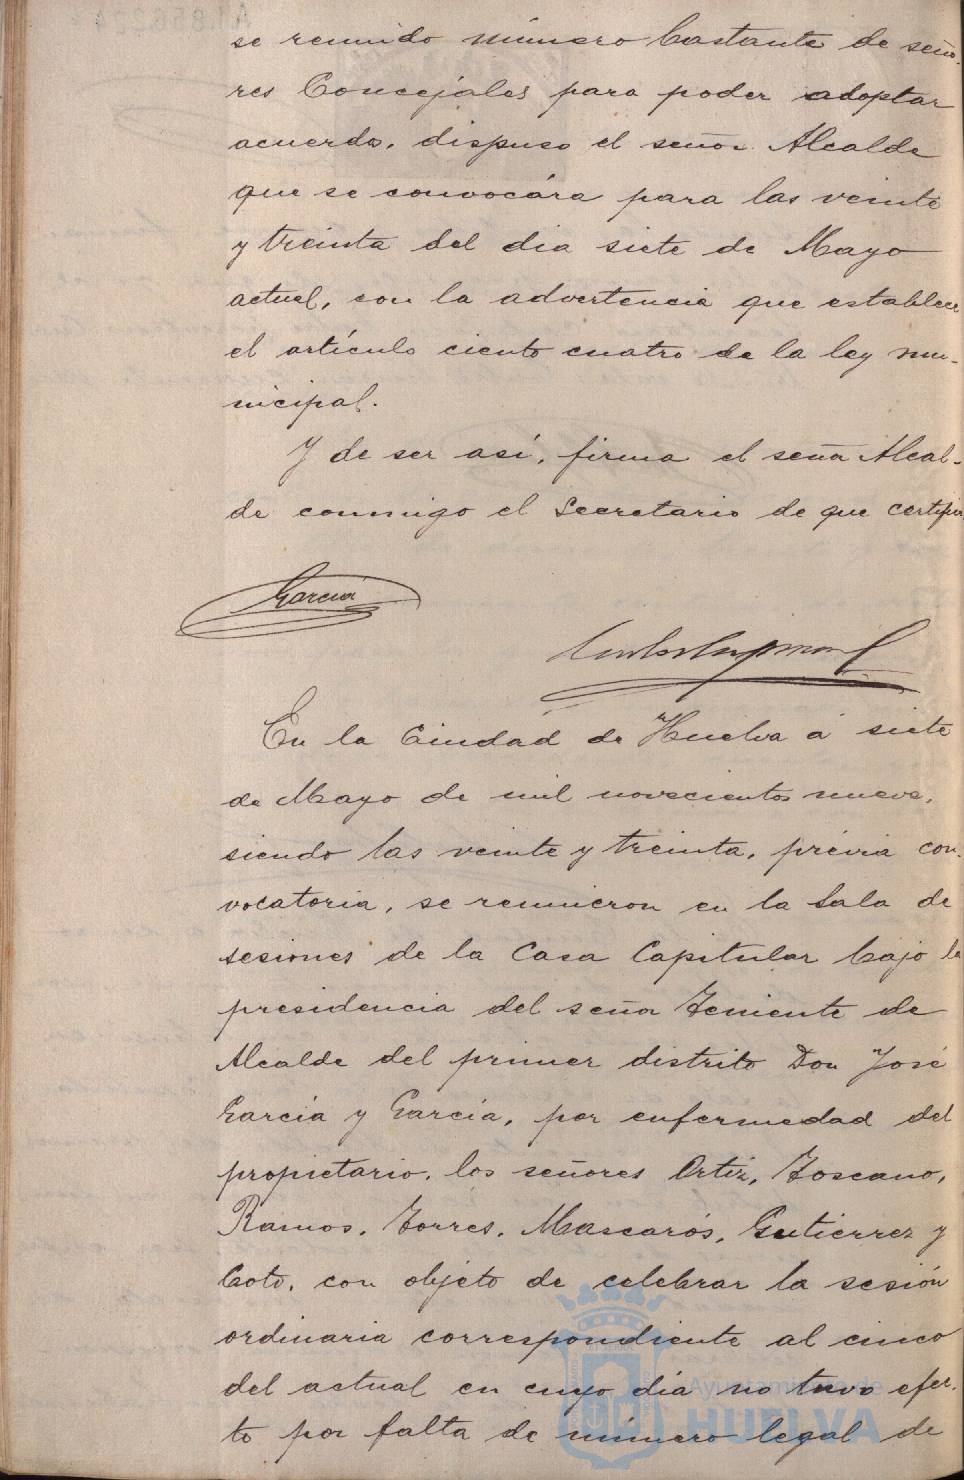 se reunido número bastante de seño-
res Concejales para poder adoptar
acuerdo, dispuso el señor Alcalde
que se convocára para las veinte
y treinta del dia siete de Mayo
actual, con la advertencia que establece
el artículo ciento cuatro de la ley mu-
nicipal.
Y de ser así, firma el señor Alcal-
de conmigo el Secretario de que certifico
García
En la Ciudad de Huelva á siete
de Mayo de mil novecientos nueve,
siendo las veinte y treinta, prévia con-
vocatoria, se reunieron en la Sala de
sesiones de la Casa Capitular bajo la
presidencia del señor Teniente de
Alcalde del primer distrito Don José
García y García, por enfermedad del
propietario, los señores Ortiz, Toscano,
Ramos, Torres, Mascarós, Gutierrez y
Coto, con objeto de celebrar la sesión
ordinaria correspondiente al cinco
del actual en cuyo dia no tuvo efec-
to por falta de número legal de
Ayuntamiento de
HUELVA